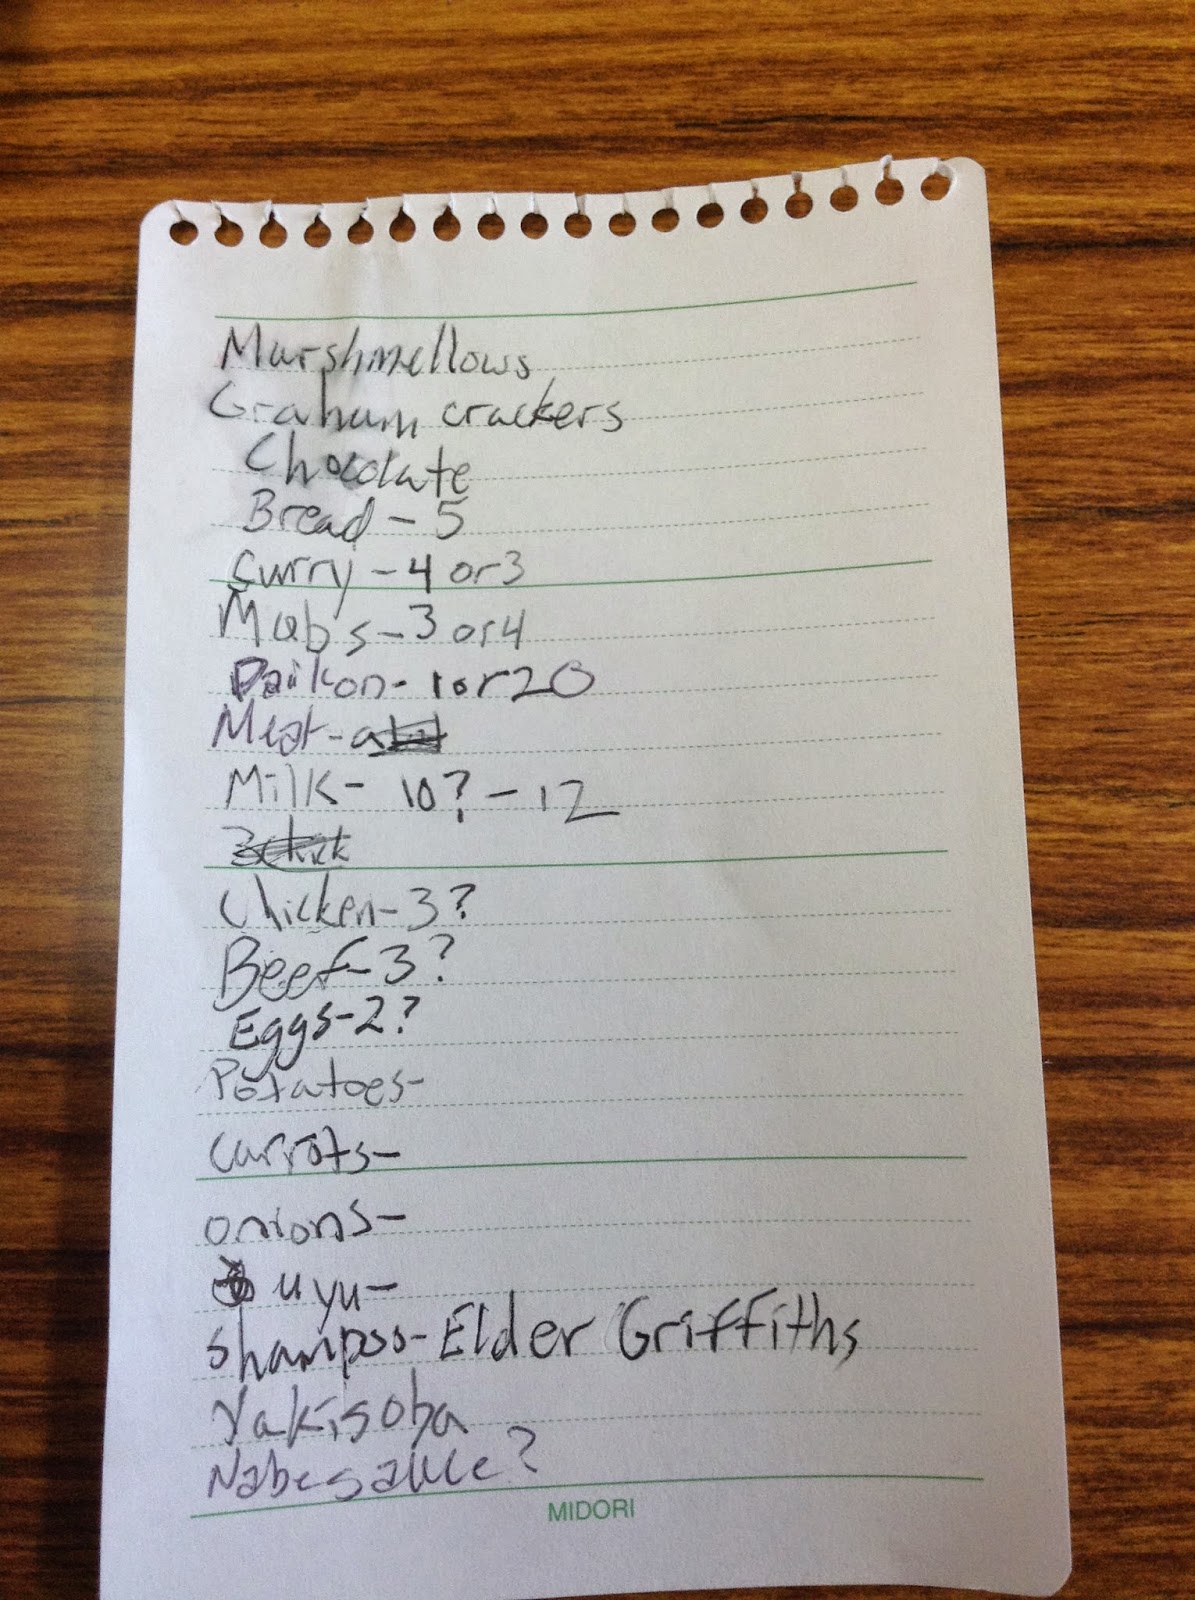 Marshmellows
Graham crackers
Chocolate
Bread - 5
Curry - 4 or 3
Mabs - 3 or 4
Daikon - 1 or 2
Meat -
Milk - 10? - 12
Chicken - 3?
Beef - 3?
Eggs - 2?
Potatoes -
Carrots -
onions -
uyu -
Shampoo - Elder Griffiths
Yakisoba
Nabe sauce?
MIDORI